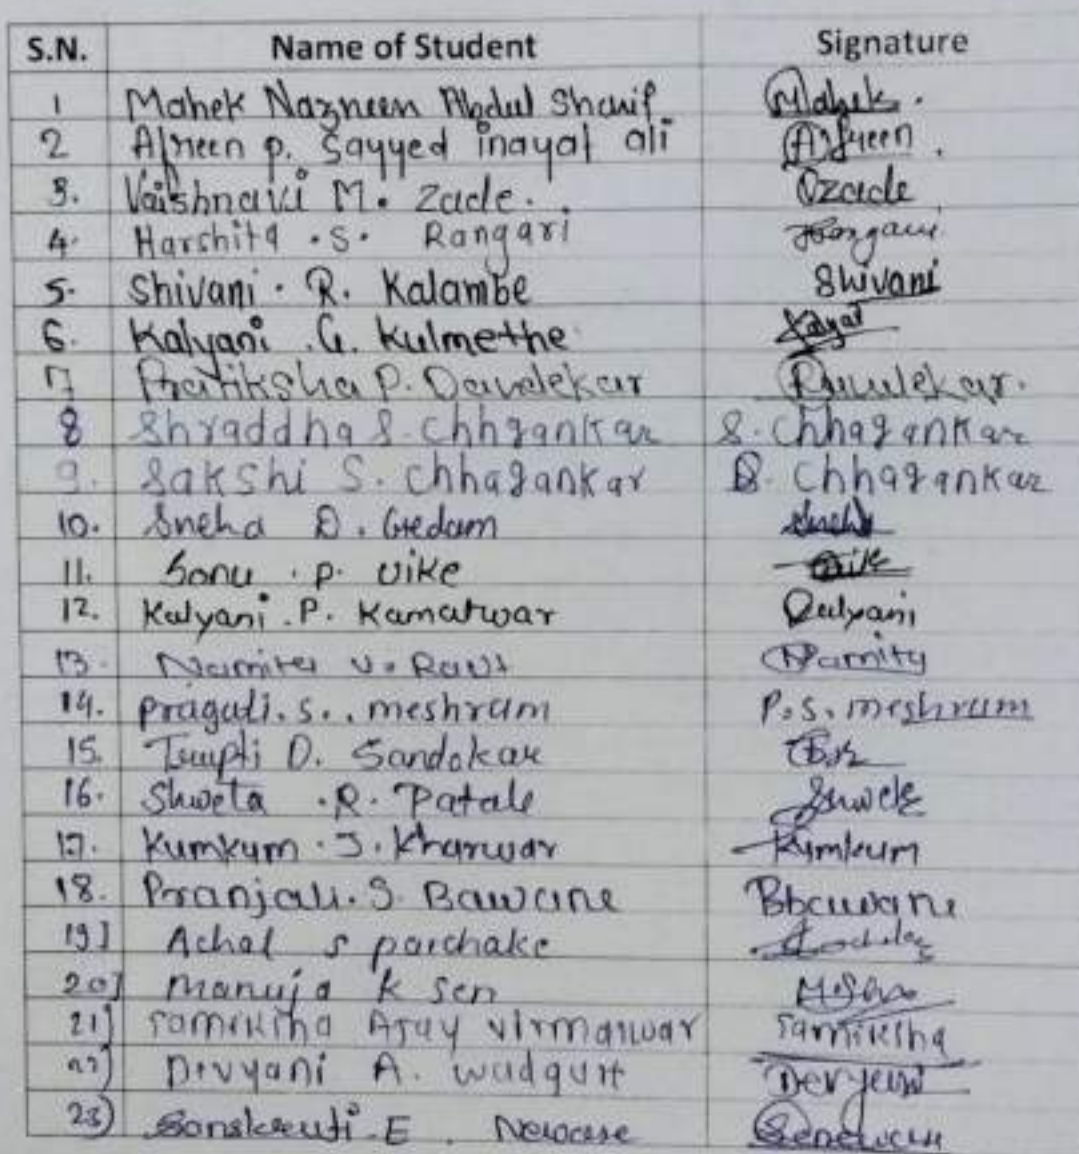 S.N. Name of Student Signature
1 Mahek Nazneen Abdul Sharif Mahek.
2 Afreen p. Sayyed inayat ali Afreen.
3. Vaishnavi M. Zade. Ozade
4. Harshita .S. Rangari
5. Shivani . R. Kalambe Shivani
6. Kalyani .G. Kulmethe
7 Pratiksha P. Dawalekar
8 Shraddha S. Chhgankar S. Chhagankar
9. Sakshi S. Chhagankar S. Chhagankar
10. Sneha D. Gedam Sneha
11. Sonu . p. uike uike
12. Kalyani . P. Kamatwar Kalyani
13. Namita v. Raut Namita
14. pragati. s.. meshram P.S. meshram
15. Trupti D. Sandokar
16. Shweta .R. Patale
17. Kumkum . J. Kharwar Kumkum
18. Pranjali. S. Bawane
19] Achal s parchake
20] Manuja k sen
21] samiksha Ajay virmalwar samiksha
22) Devyani A. wadgure Devyani
23) Sanskruti E. Neware